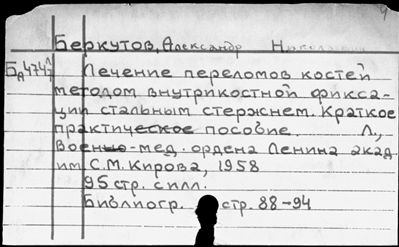 Беркутов, Александр Николаевич
БА474/1 Лечение переломов костей
методом внутрикостной фикса-
ции стальным стержнем. Краткое
практическое пособие. Л.,-
Военно-мед. ордена Ленина акад
им С.М. Кирова, 1958
95 стр. с илл.
Библиогр. стр. 88-94